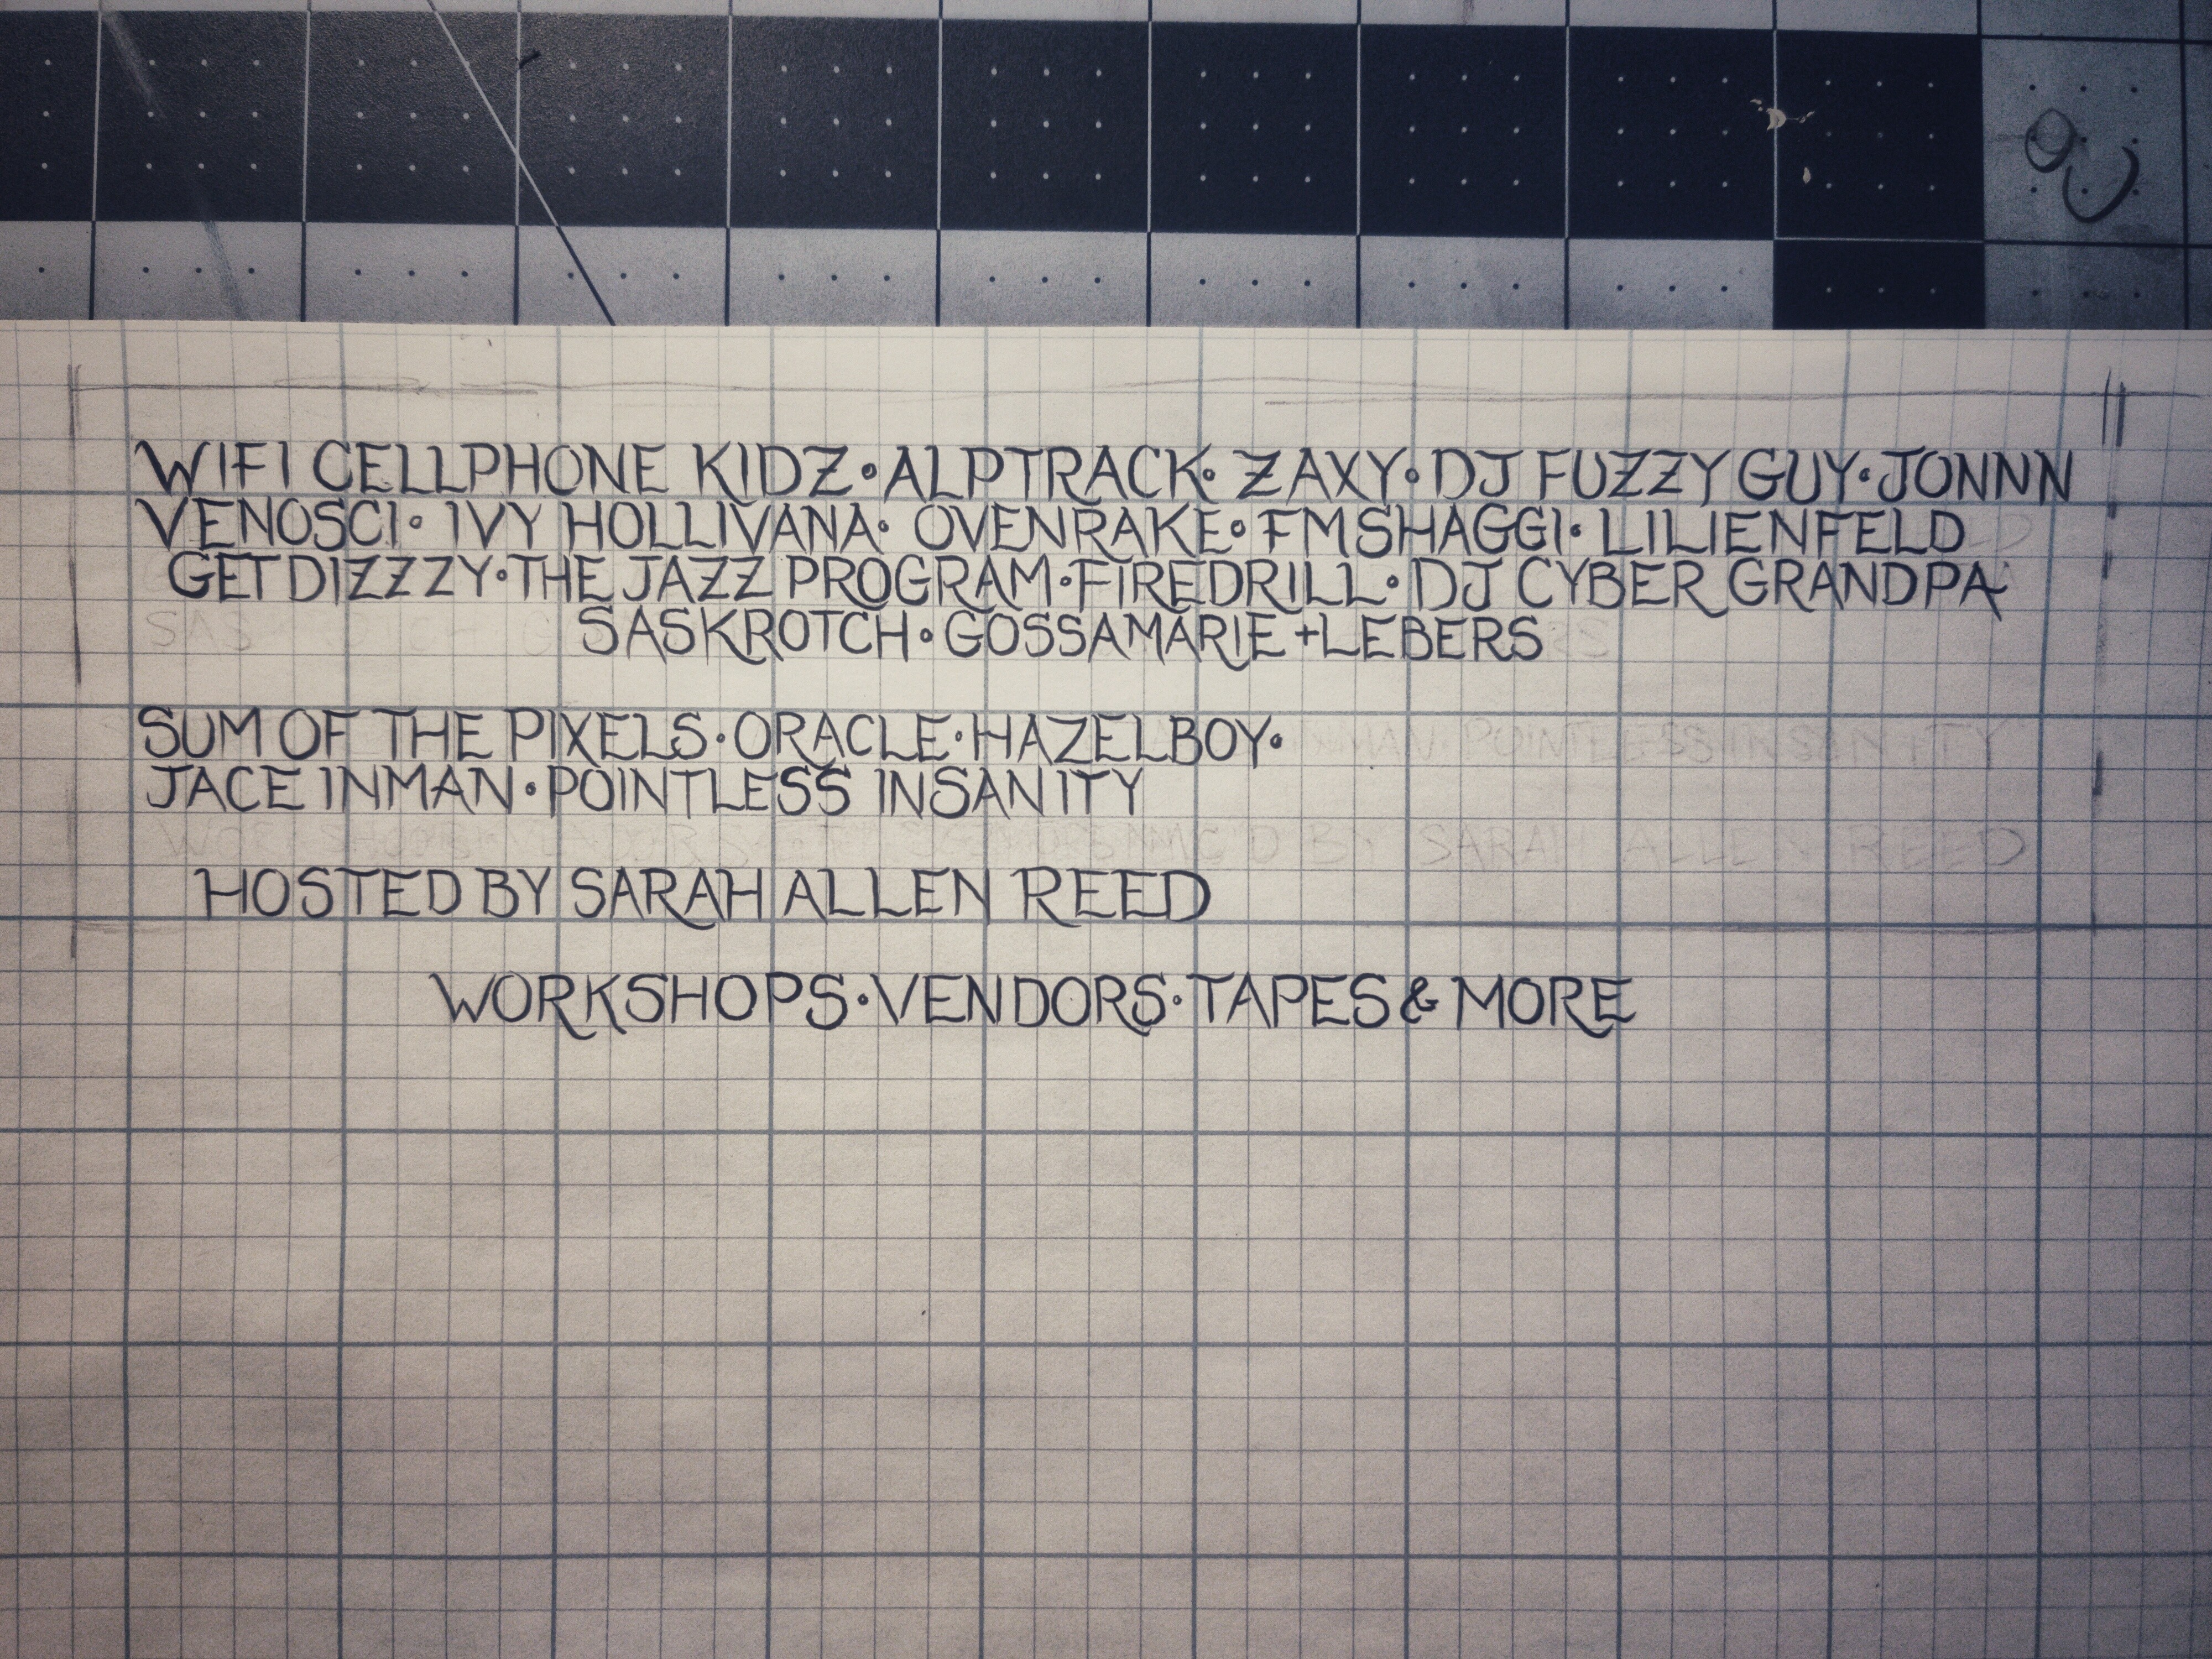 WIFI CELLPHONE KIDZ • ALPTRACK • ZAXY • DJ FUZZY GUY • JONNN
VENOSCI • IVY HOLLIVANA • OVENRAKE • FMSHAGGI • LILIENFELD
GET DIZZZY • THE JAZZ PROGRAM • FIREDRILL • DJ CYBER GRANDPA
SASKROTCH • GOSSAMARIE + LEBERS
SUM OF THE PIXELS • ORACLE • HAZELBOY •
JACE INMAN • POINTLESS INSANITY
HOSTED BY SARAH ALLEN REED
WORKSHOPS • VENDORS • TAPES & MORE